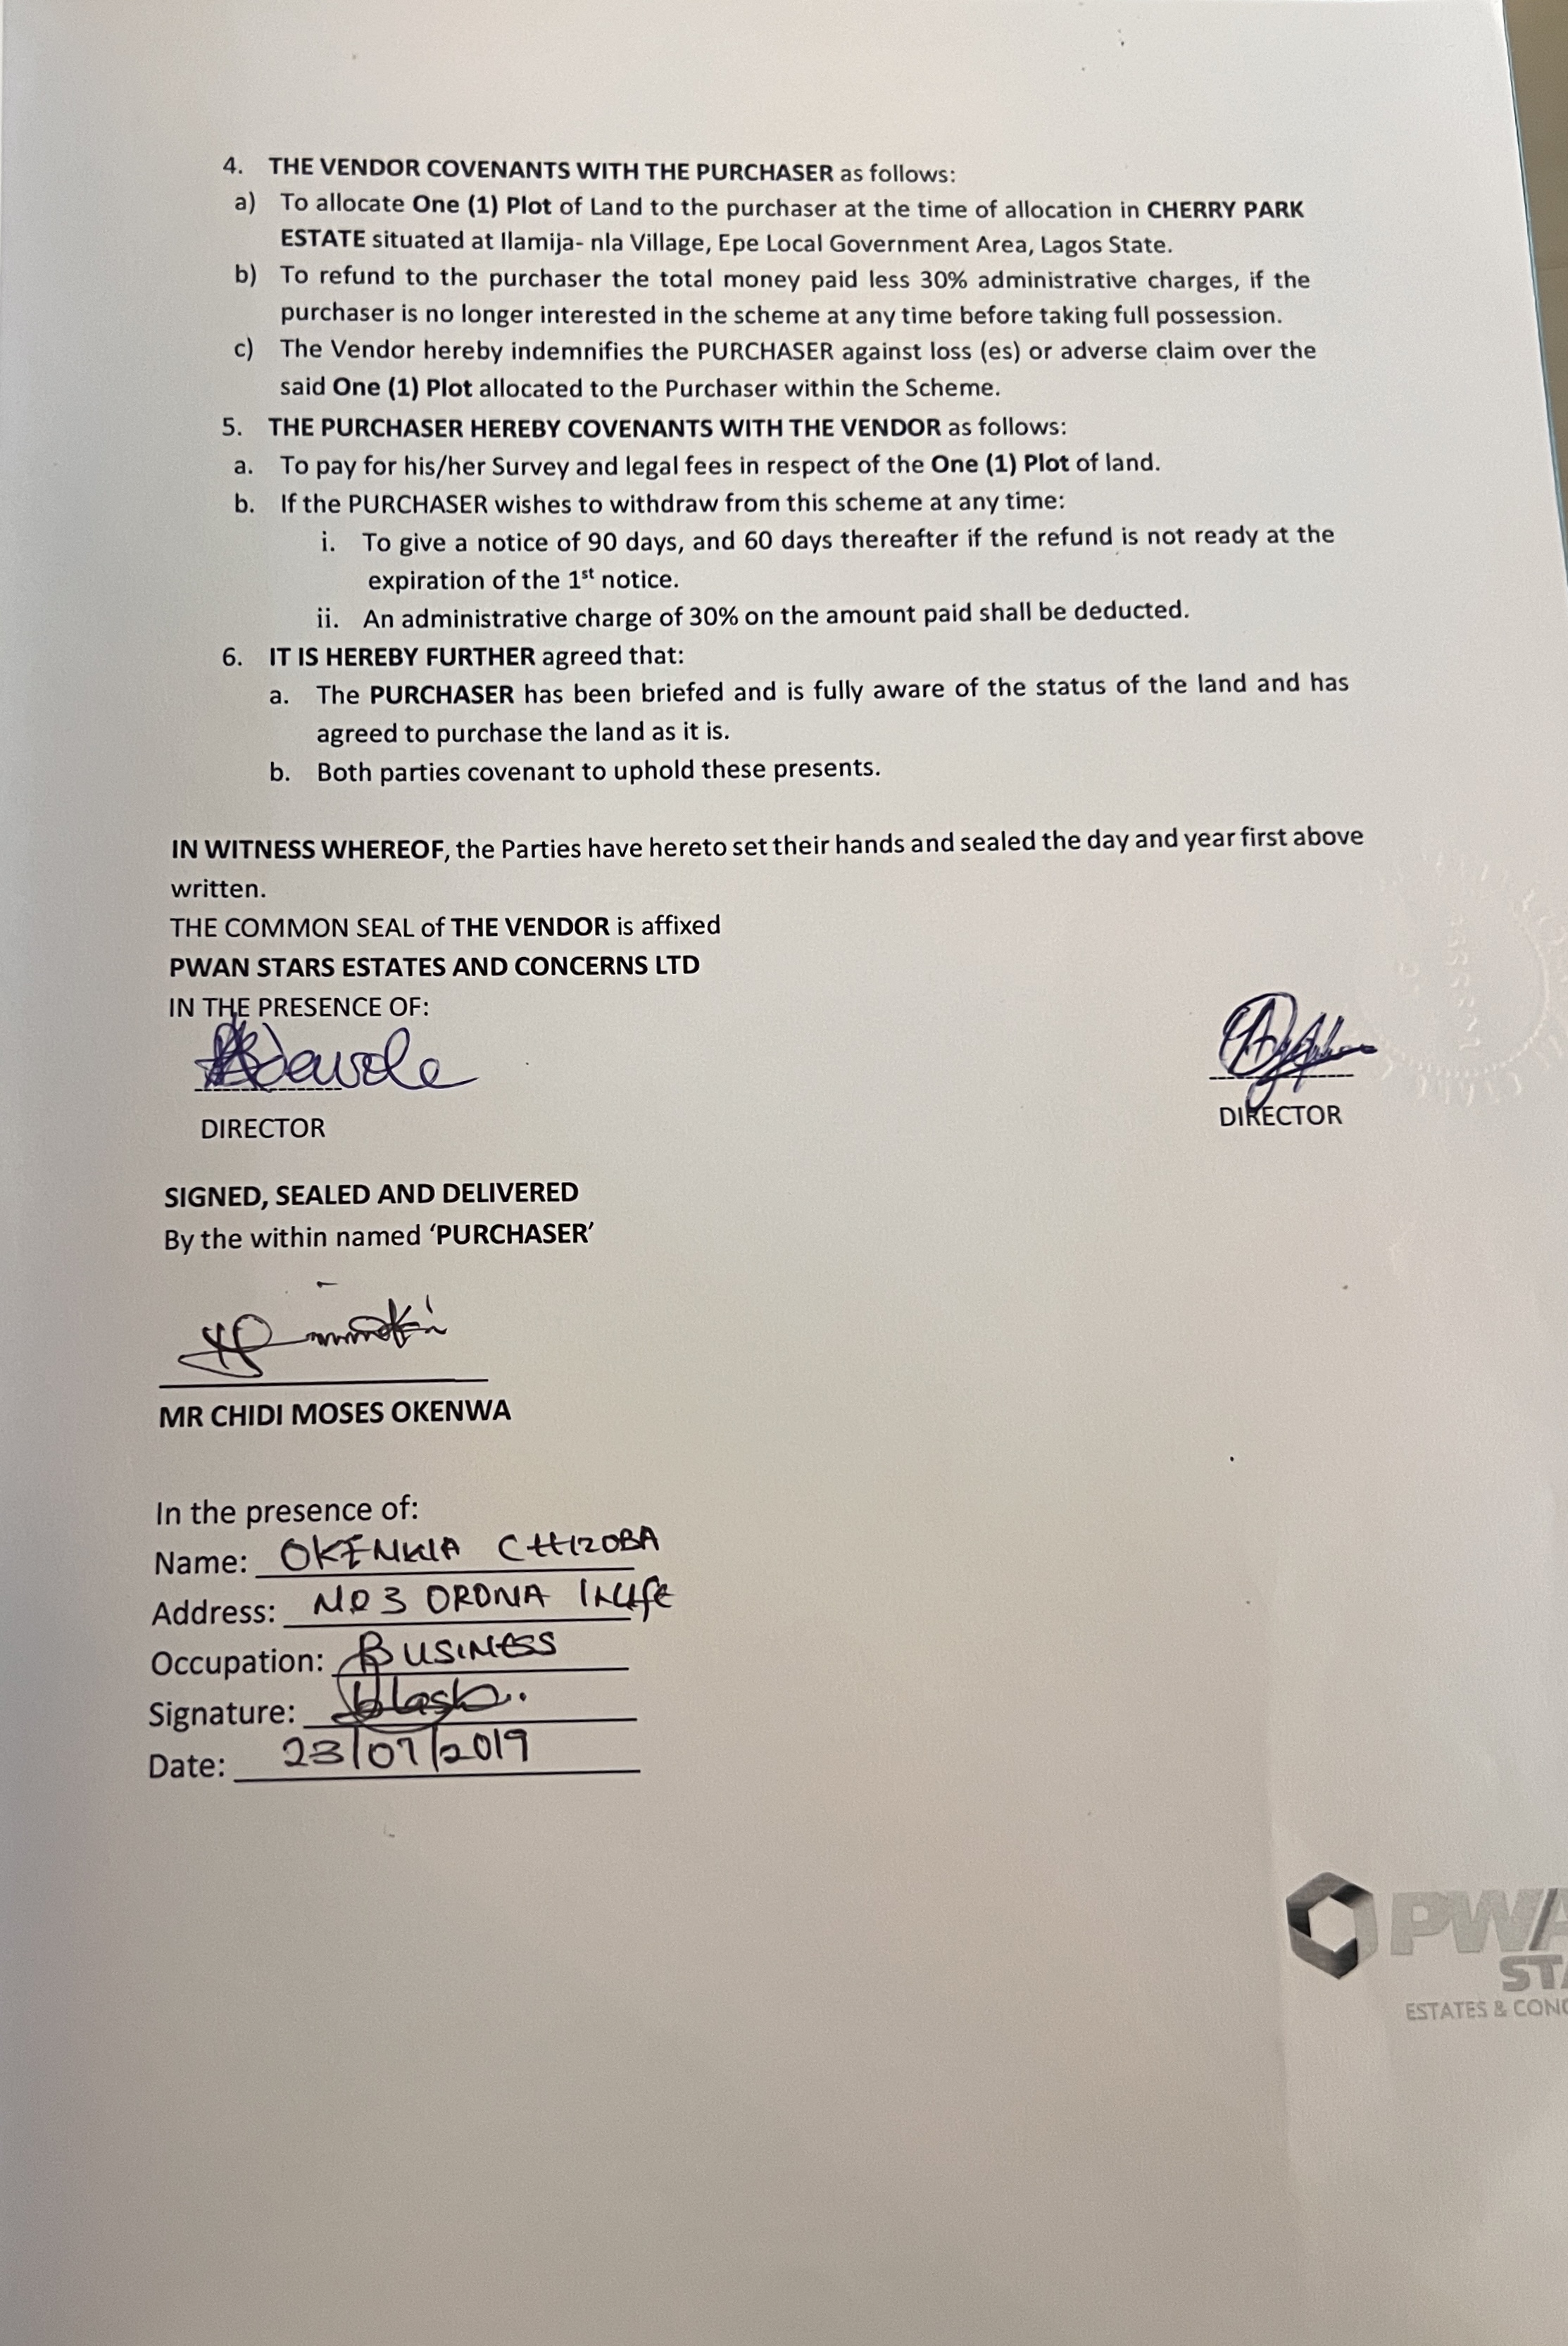 4. THE VENDOR COVENANTS WITH THE PURCHASER as follows:
a) To allocate One (1) Plot of Land to the purchaser at the time of allocation in CHERRY PARK
ESTATE situated at Ilamija- nla Village, Epe Local Government Area, Lagos State.
b) To refund to the purchaser the total money paid less 30% administrative charges, if the
purchaser is no longer interested in the scheme at any time before taking full possession.
c) The Vendor hereby indemnifies the PURCHASER against loss (es) or adverse claim over the
said One (1) Plot allocated to the Purchaser within the Scheme.
5. THE PURCHASER HEREBY COVENANTS WITH THE VENDOR as follows:
a. To pay for his/her Survey and legal fees in respect of the One (1) Plot of land.
b. If the PURCHASER wishes to withdraw from this scheme at any time:
i. To give a notice of 90 days, and 60 days thereafter if the refund is not ready at the
expiration of the 1st notice.
ii. An administrative charge of 30% on the amount paid shall be deducted.
6. IT IS HEREBY FURTHER agreed that:
a. The PURCHASER has been briefed and is fully aware of the status of the land and has
agreed to purchase the land as it is.
b. Both parties covenant to uphold these presents.
IN WITNESS WHEREOF, the Parties have hereto set their hands and sealed the day and year first above
written.
THE COMMON SEAL of THE VENDOR is affixed
PWAN STARS ESTATES AND CONCERNS LTD
IN THE PRESENCE OF:
DIRECTOR DIRECTOR
SIGNED, SEALED AND DELIVERED
By the within named ‘PURCHASER’
MR CHIDI MOSES OKENWA
In the presence of:
Name: OKENWA CHIZOBA
Address: NO 3
Occupation: BUSINESS
Signature:
Date: 23/07/2019
PWA
STA
ESTATES & CONC